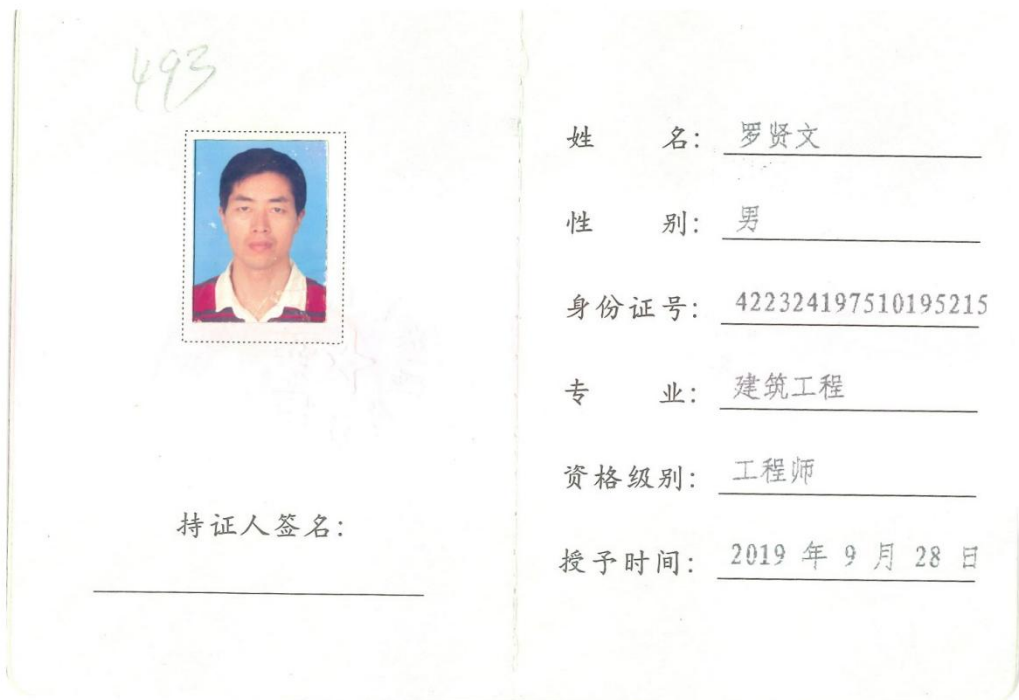 493
持证人签名:
姓名: 罗贤文
性别: 男
身份证号: 422324197510195215
专业: 建筑工程
资格级别: 工程师
授予时间: 2019 年 9 月 28 日